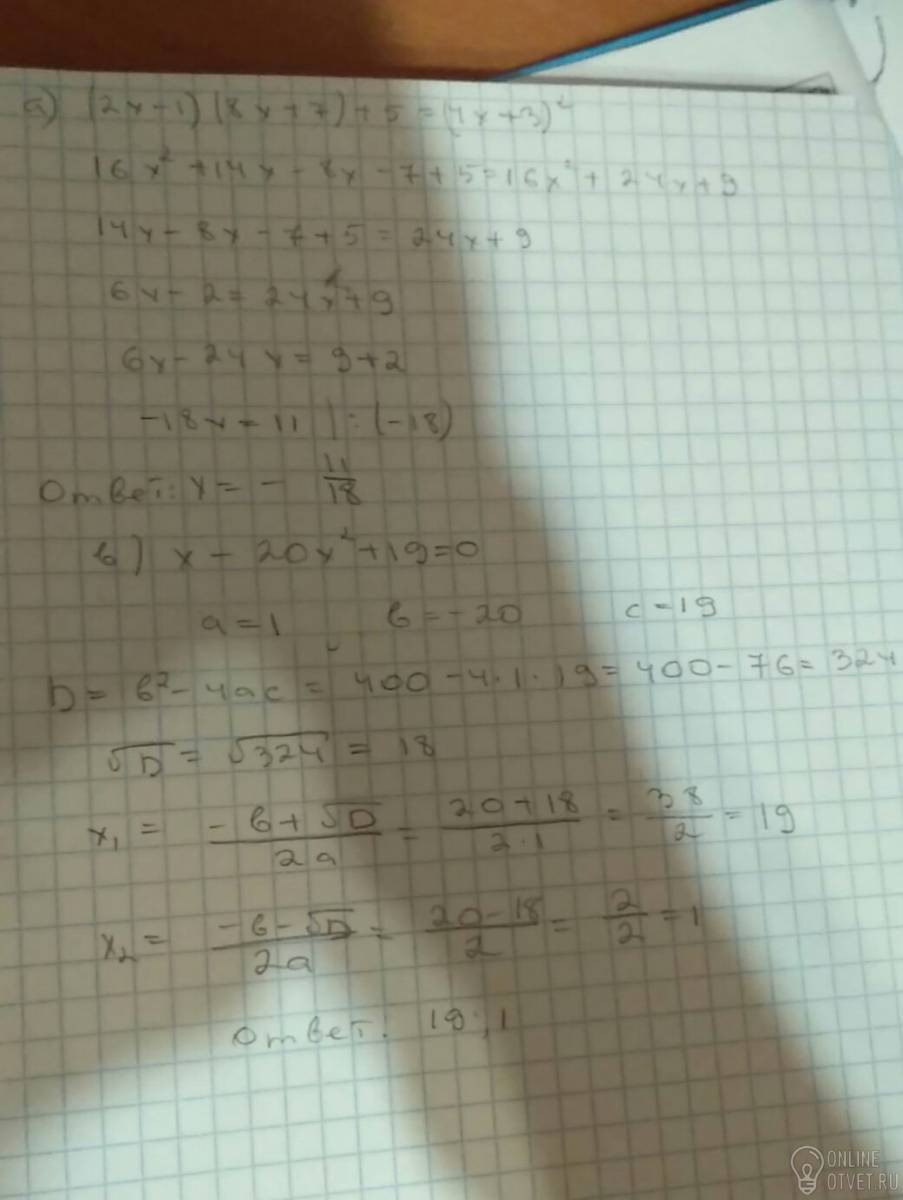 а) (2x-1)(8x+7)+5=(4x+3)²
16x²+14x-8x-7+5=16x²+24x+9
14x-8x-7+5=24x+9
6x-2=24x+9
6x-24x=9+2
-18x=11 | :(-18)
Ответ: x=- 11/18
в) x-20x²+19=0
a=1 в=-20 c=19
D= в²-4ac= 400-4·1·19=400-76=324
√D=√324=18
x₁= (-в+√D)/2a = (20+18)/(2·1) = 38/2 = 19
x₂= (-в-√D)/2a = (20-18)/2 = 2/2 = 1
Ответ: 19;1
ONLINE
OTVET.RU